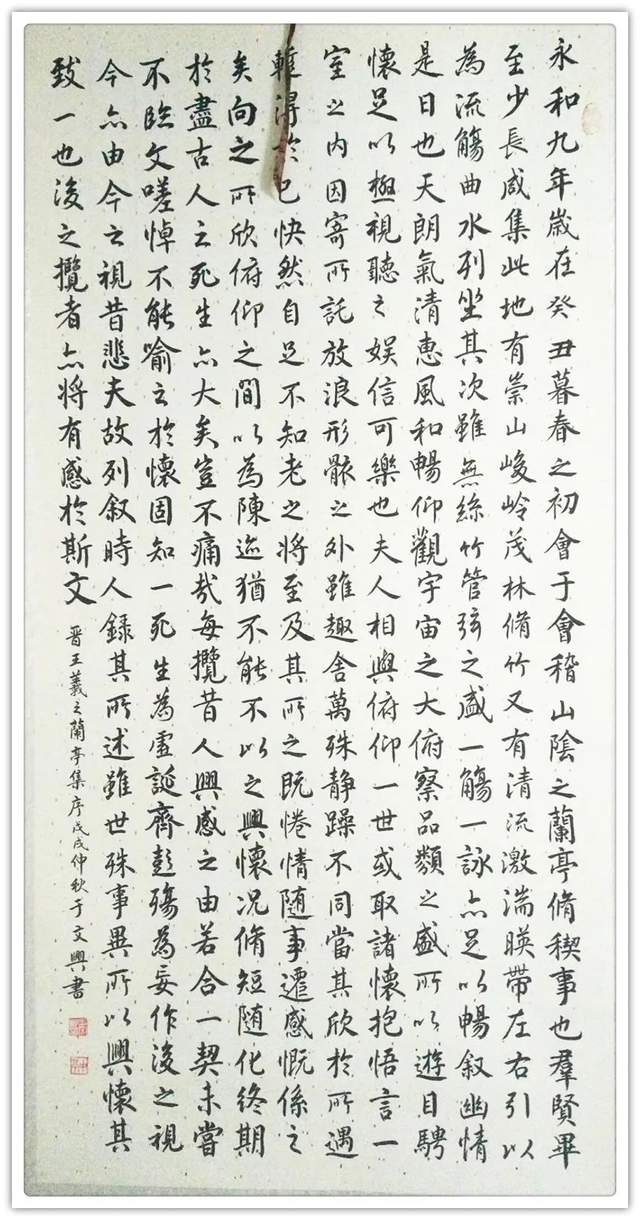 永和九年歲在癸丑暮春之初會于會稽山陰之蘭亭脩稧事也羣賢畢
至少長咸集此地有崇山峻岭茂林脩竹又有清流激湍暎帶左右引以
為流觴曲水列坐其次雖無絲竹管弦之盛一觴一詠亦足以暢叙幽情
是日也天朗氣清惠風和暢仰觀宇宙之大俯察品類之盛所以遊目騁
懷足以極視聽之娱信可樂也夫人相與俯仰一世或取諸懷抱悟言一
室之内因寄所託放浪形骸之外雖趣舍萬殊静躁不同當其欣於所遇
暫得於己快然自足不知老之将至及其所之既惓情随事遷感慨係之
矣向之所欣俯仰之間以為陳迹猶不能不以之興懷況脩短随化終期
於盡古人云死生亦大矣豈不痛哉每攬昔人興感之由若合一契未嘗
不臨文嗟悼不能喻之於懷固知一死生為虚誕齊彭殤為妄作後之視
今亦由今之視昔悲夫故列叙時人録其所述雖世殊事異所以興懷其
致一也後之攬者亦将有感於斯文
晋王羲之蘭亭集序戊戌仲秋于文興書